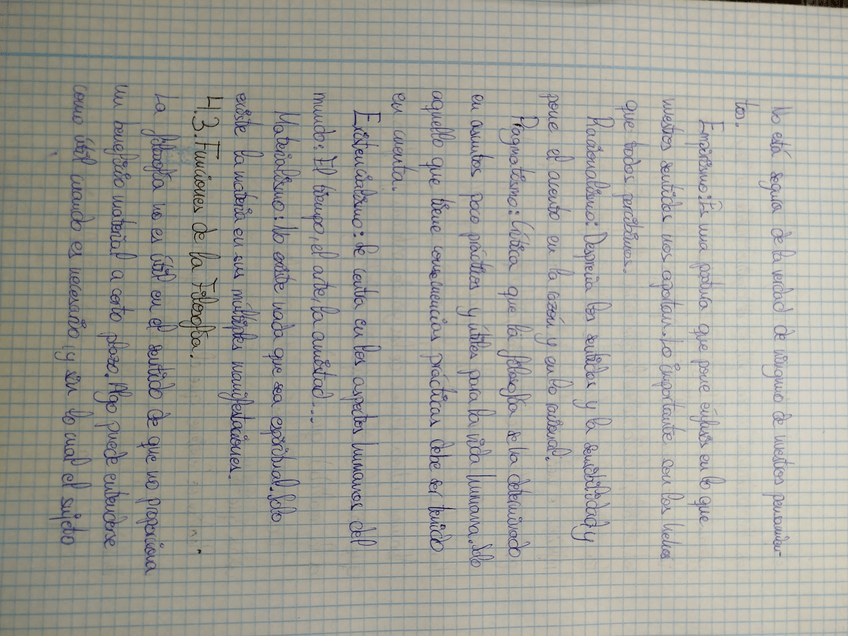 No está segura de la verdad de ninguno de nuestros pensamien-
tos.
Empirismo: Es una postura que pone énfasis en lo que
nuestros sentidos nos aportan. Lo importante son los hechos
que todos percibimos.
Racionalismo: Desprecia los sentidos y la sensibilidad y
pone el acento en la razón y en lo racional.
Pragmatismo: Critica que la filosofía se ha determinado
en asuntos poco prácticos y útiles para la vida humana. Solo
aquello que tiene consecuencias prácticas debe ser tenido
en cuenta.
Existencialismo: Se centra en los aspectos humanos del
mundo: El tiempo, el arte, la amistad...
Materialismo: No existe nada que sea espiritual. Solo
existe la materia en sus múltiples manifestaciones.
4.3 Funciones de la Filosofía.
La filosofía no es útil en el sentido de que no proporciona
un beneficio material a corto plazo. Algo puede entenderse
como útil cuando es necesario, y sin lo cual el sujeto